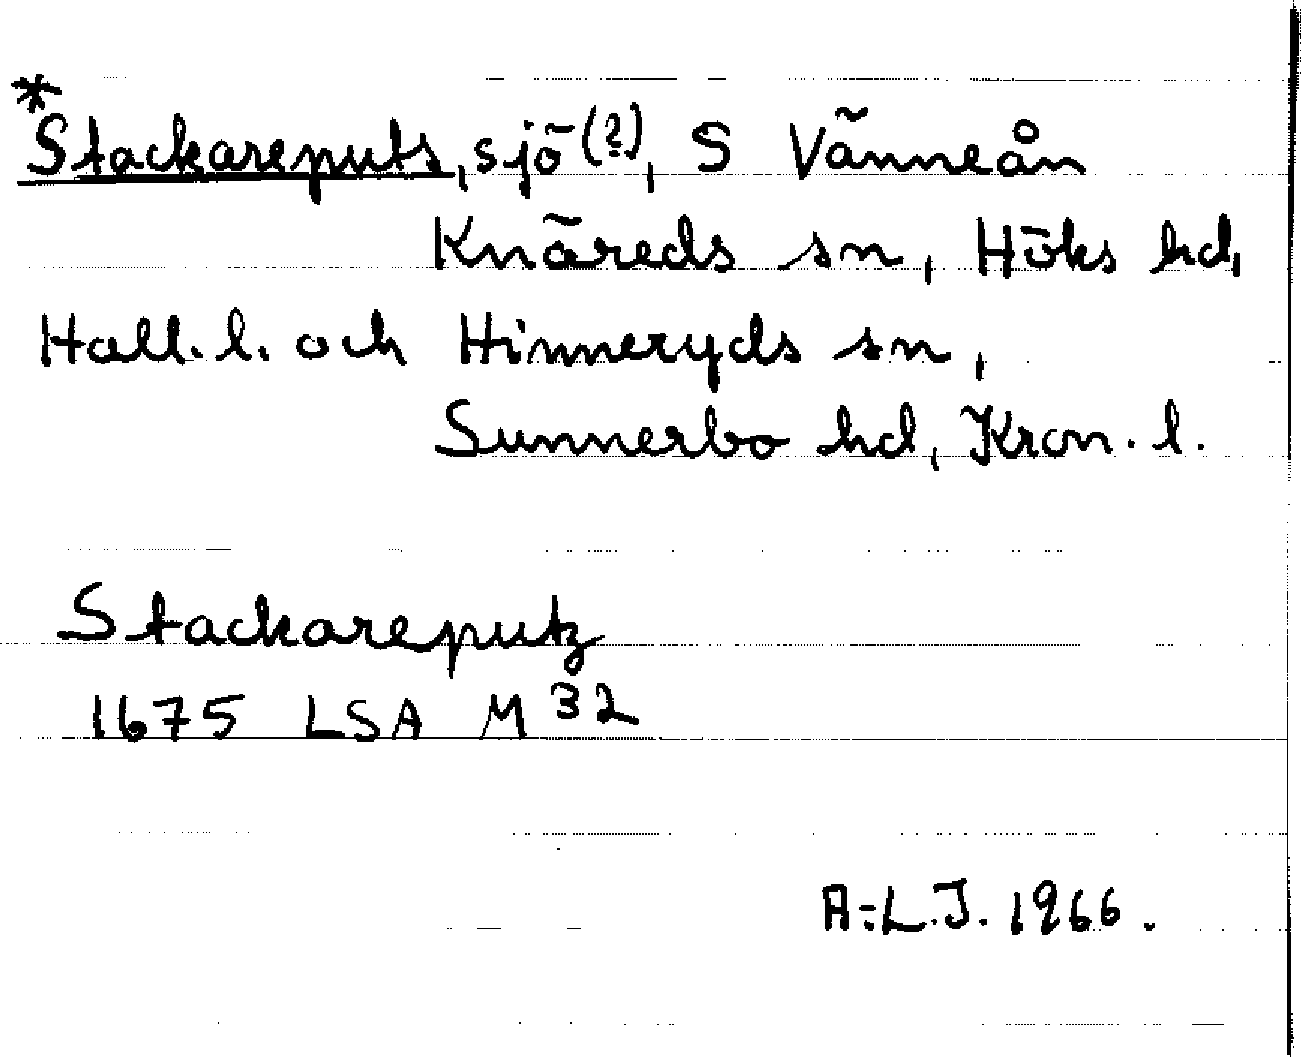 *Stackareputs, sjö (?), S Vänneån
Knäreds sn, Höks hd,
Hall. l. och Hinneryds sn,
Sunnerbo hd, Kron. l.
Stackareputz
1675 LSA M 32
A:L.J. 1966.